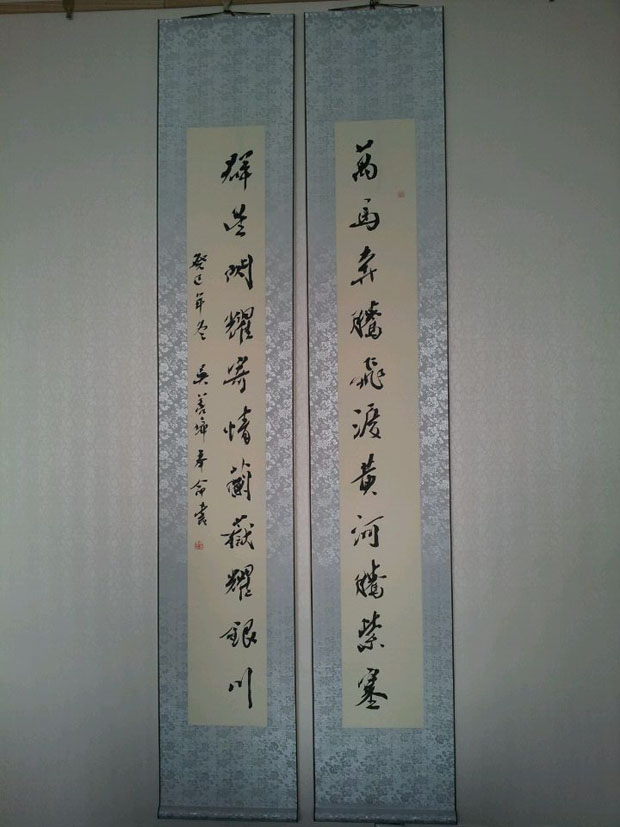 萬馬奔騰飛渡黃河騰紫塞
群星閃耀寄情蘭嶽耀銀川
癸巳年冬 吳善璋奉命書